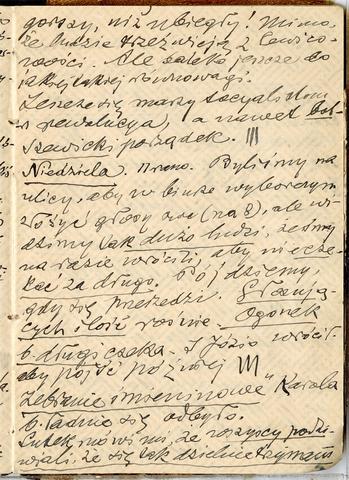 gorszy, niż ubiegły! Mimo,
że ludzie trzeźwieją z lewico-
wości. Ale daleko jeszcze do
jakiej takiej równowagi.
Jeszcze się marzy socjalistom
rewolucya, a nawet bol-
szewicki porządek.
Niedziela. Rano. Byliśmy na
ulicy, aby w biurze wyborczym
złożyć głosy (na 8), ale wi-
dzimy tak dużo ludzi, żeśmy
na razie wrócili, aby nie cze-
kać za długo. Pójdziemy,
gdy się przerzedzi. Głosują-
cych ilość rośnie. Ogonek
b. długi czeka. I Józio wrócił.
aby pójść później
Zebranie imieninowe Karola
b. ładnie się odbyło.
Lutek mówi mi, że wszyscy podzi-
wiali, że się tak dzielnie trzymam